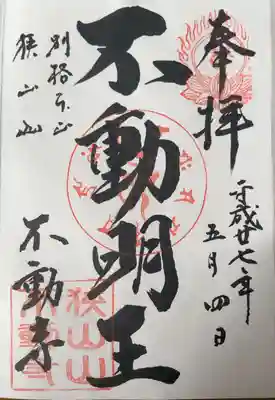 奉拝
平成廿七年
五月四日
不動明王
別格本山
狭山山
不動寺
狭山山
不動寺